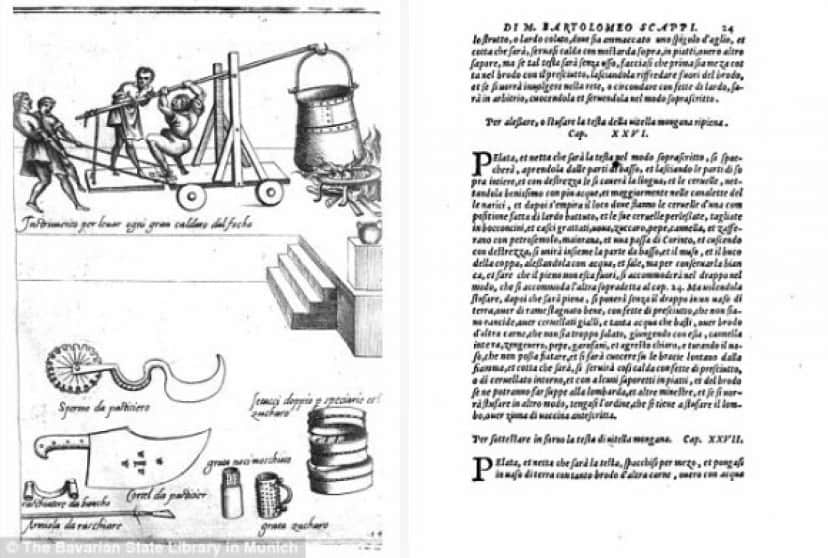 Instrumento per leuar ogni gran caldaro dal focho
Sperone da pasticiero
Setacci doppio p speciarie et
zucharo
grata noci moschiate
Cortel da pasticier
raschiatore da bancho
da raschiare
grata zucharo
© The Bavarian State Library in Munich
DI M. BARTOLOMEO SCAPPI. 24
lo strutto, o lardo colato, doue sia ammaccato uno spigolo d'aglio, et
cotta che sarà, seruasi caldo con mostarda sopra, in piatti, ouero altro
sapore, ma se tal testa sarà senza osso, facciasi che prima sia meza cot
ta nel brodo con il presciutto, lasciandola riffredare fuori del brodo,
et se si uorrà inuolgere nella rete, o circondare con fette di lardo, sa-
rà in arbitrio, cuocendola et seruendola nel modo soprascritto.
Per alessare, o stufare la testa della uitella mongana ripiena.
Cap. XXVI.
PElata, et netta che sarà la testa nel modo soprascritto, si spac-
cherà, aprendola dalle parti di basso, et lasciando le parti di so
pra intiere, et con destrezza le si cauerà la lingua, et le ceruelle, net-
tandola benissimo con piu acque, et maggiormente nelle canalette del
le narici, et dapoi s'empirà il loco doue stanno le ceruelle d'una com
positione fatta di lardo battuto, et le sue ceruelle perlessate, tagliate
in bocconcini, et casci grattati, uoua, zuccaro, pepe, cannella, et zaffe-
rano con petrosemolo, maiorana, et una passa di Corinto, et cuscendo
con destrezza, si unirà insieme la parte da basso, et il muso, et il buco
della coppa, alessandola con acqua, et sale, ma per conseruarla bian
ca, et fare che il pieno non esca fuori, si accommoderà nel drappo nel
modo, che si accommoda l'altra sopradetta al cap. 24. Ma uolendola
stufare, dapoi che sarà piena, si ponerà senza il drappo in un uaso di
terra, ouer di rame stagnato bene, con fette di presciutto, che non sia-
no rancide, ouer ceruellati gialli, e tanta acqua che basti, ouer brodo
d'altra carne, che non sia troppo salato, giungendo con essa, cannella
intera, zengeuero, pepe, garofani, et agresto chiaro, e turando il ua-
so, che non possa fiatare, et si farà cuocere su le bracie lontano dalla
fiamma, et cotta che sarà, si seruirà cosi calda con fette di presciutto,
o di ceruellato intorno, et con alcuni saporetti in piatti, et del brodo
se ne potranno far suppe alla lombarda, et altre minestre, et se si uor-
rà stufare in altro modo, tengasi l'ordine, che si tiene a stufare il lom-
bo, ouer zinna di uaccina antescritta.
Per sottestare in forno la testa di uitella mongana. Cap. XXVII.
PElata, et netta che sarà la testa, spacchisi per mezo, et pongasi
in uaso di terra con tanto brodo d'altra carne, ouero con acqua